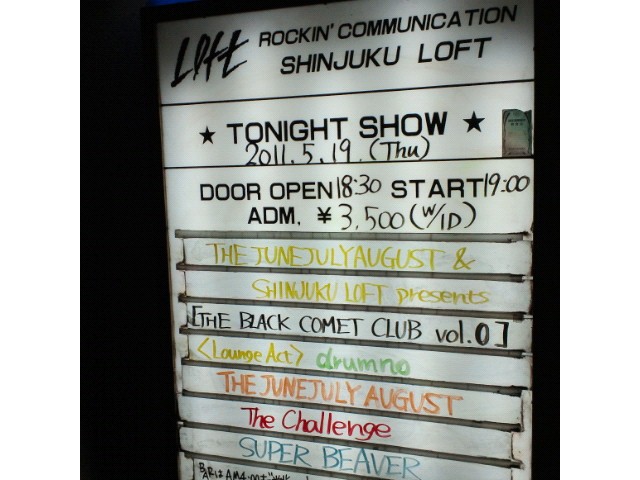 Loft ROCKIN' COMMUNICATION
SHINJUKU LOFT
★ TONIGHT SHOW ★
2011.5.19.(Thu)
DOOR OPEN 18:30 START 19:00
ADM. ¥ 3,500 (W/1D)
THE JUNEJULYAUGUST &
SHINJUKU LOFT presents
[THE BLACK COMET CLUB vol.0]
<Lounge Act> drumno
THE JUNEJULY AUGUST
The Challenge
SUPER BEAVER